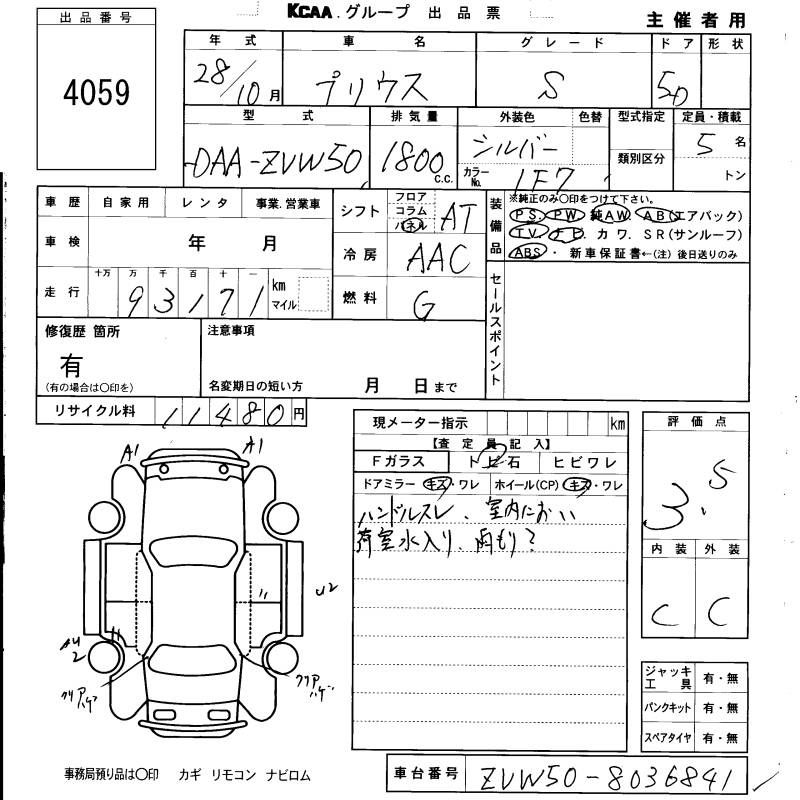 KCAA グループ 出品票
主催者用
出品番号
4059
年式 車名 グレード ドア 形状
28/10月 プリウス S 5D
型式 排気量 外装色 色替 型式指定 定員・積載
DAA-ZVW50 1800c.c. シルバー 5名
カラーNo. 1F7 類別区分 トン
車歴 自家用 レンタ 事業.営業車
シフト フロア コラム パネル AT
装備品 ※純正のみ〇印をつけて下さい。
PS. PW 純AW AB(エアバック)
TV. ナビ. カワ. SR(サンルーフ)
ABS・新車保証書←(注)後日送りのみ
車検 年 月
冷房 AAC
走行 十万 万 千 百 十 一
93171 km マイル
燃料 G
セールスポイント
修復歴 箇所
有
(有の場合は〇印を)
注意事項
名変期日の短い方 月 日まで
リサイクル料 11480円
現メーター指示 km
【査定員記入】
Fガラス トビ石 ヒビワレ
ドアミラー キズ・ワレ ホイール(CP) キズ・ワレ
ハンドルスレ、室内におい
荷室水入り、雨もり?
評価点
3.5
内装 外装
C C
A1 A1
U2
2
クリアハゲ クリアハゲ
ジャッキ工具 有・無
パンクキット 有・無
スペアタイヤ 有・無
事務局預り品は〇印 カギ リモコン ナビロム
車台番号 ZVW50-8036841